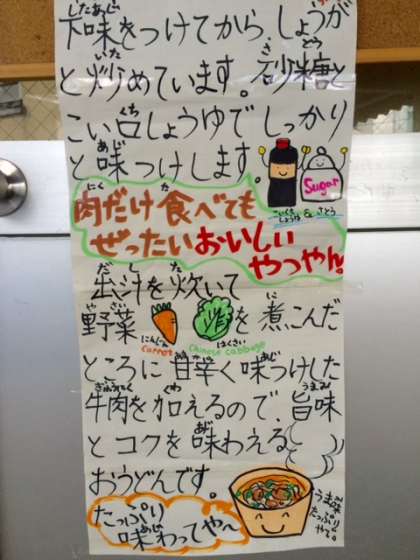 下味をつけてから、しょうが
と炒めています。砂糖と
こい口しょうゆでしっかり
と味つけします。
Sugar
こいくちしょうゆ & さとう
肉だけ食べても
ぜったいおいしい
やつやん。
出汁を炊いて
野菜 にんじん carrot はくさい Chinese cabbage を煮こんだ
ところに甘辛く味つけした
牛肉を加えるので、旨味
とコクを味わえる
おうどんです。
たっぷり
味わってや〜
うま味
たっぷり
やで。